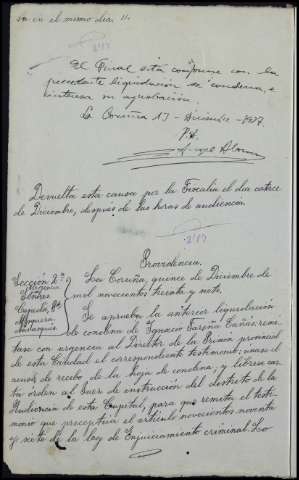 en el mismo día.
El Fiscal está conforme con la
precedente liquidación de condena, e
interesa su aprobación.
La Coruña 13 - Diciembre - 1937
P.A.
Devuelta esta causa por la Fiscalía el día catorce
de Diciembre, después de las horas de audiencia.
Providencia.
Sección 2ª La Coruña, quince de Diciembre de
mil novecientos treinta y siete.
Se aprueba la anterior liquidación
de condena de Ignacio remí-
tase con urgencia al Director de la Prisión provincial
de esta Ciudad el correspondiente testimonio; únase el
acuse de recibo de la hoja de condena, y líbrese car-
ta orden al Juez de instrucción del distrito de la
Audiencia de esta Capital, para que remita el testi-
monio que preceptúa el artículo novecientos noventa
y siete de la ley de Enjuiciamiento criminal. Lo